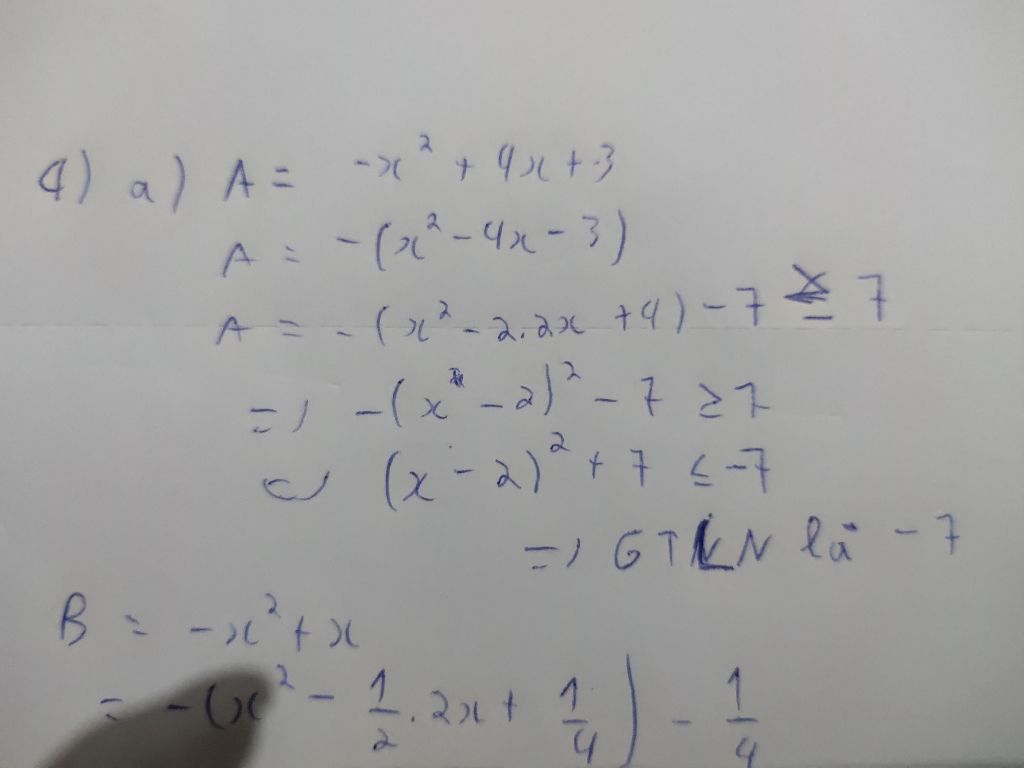 4) a) A = -x² + 4x + 3
A = -(x² - 4x - 3)
A = -(x² - 2.2x + 4) - 7 ≤ 7
=) -(x - 2)² - 7 ≥ 7
(x - 2)² + 7 ≤ -7
=) GTLN là -7
B = -x² + x
= -(x² - 1/2 . 2x + 1/4) - 1/4